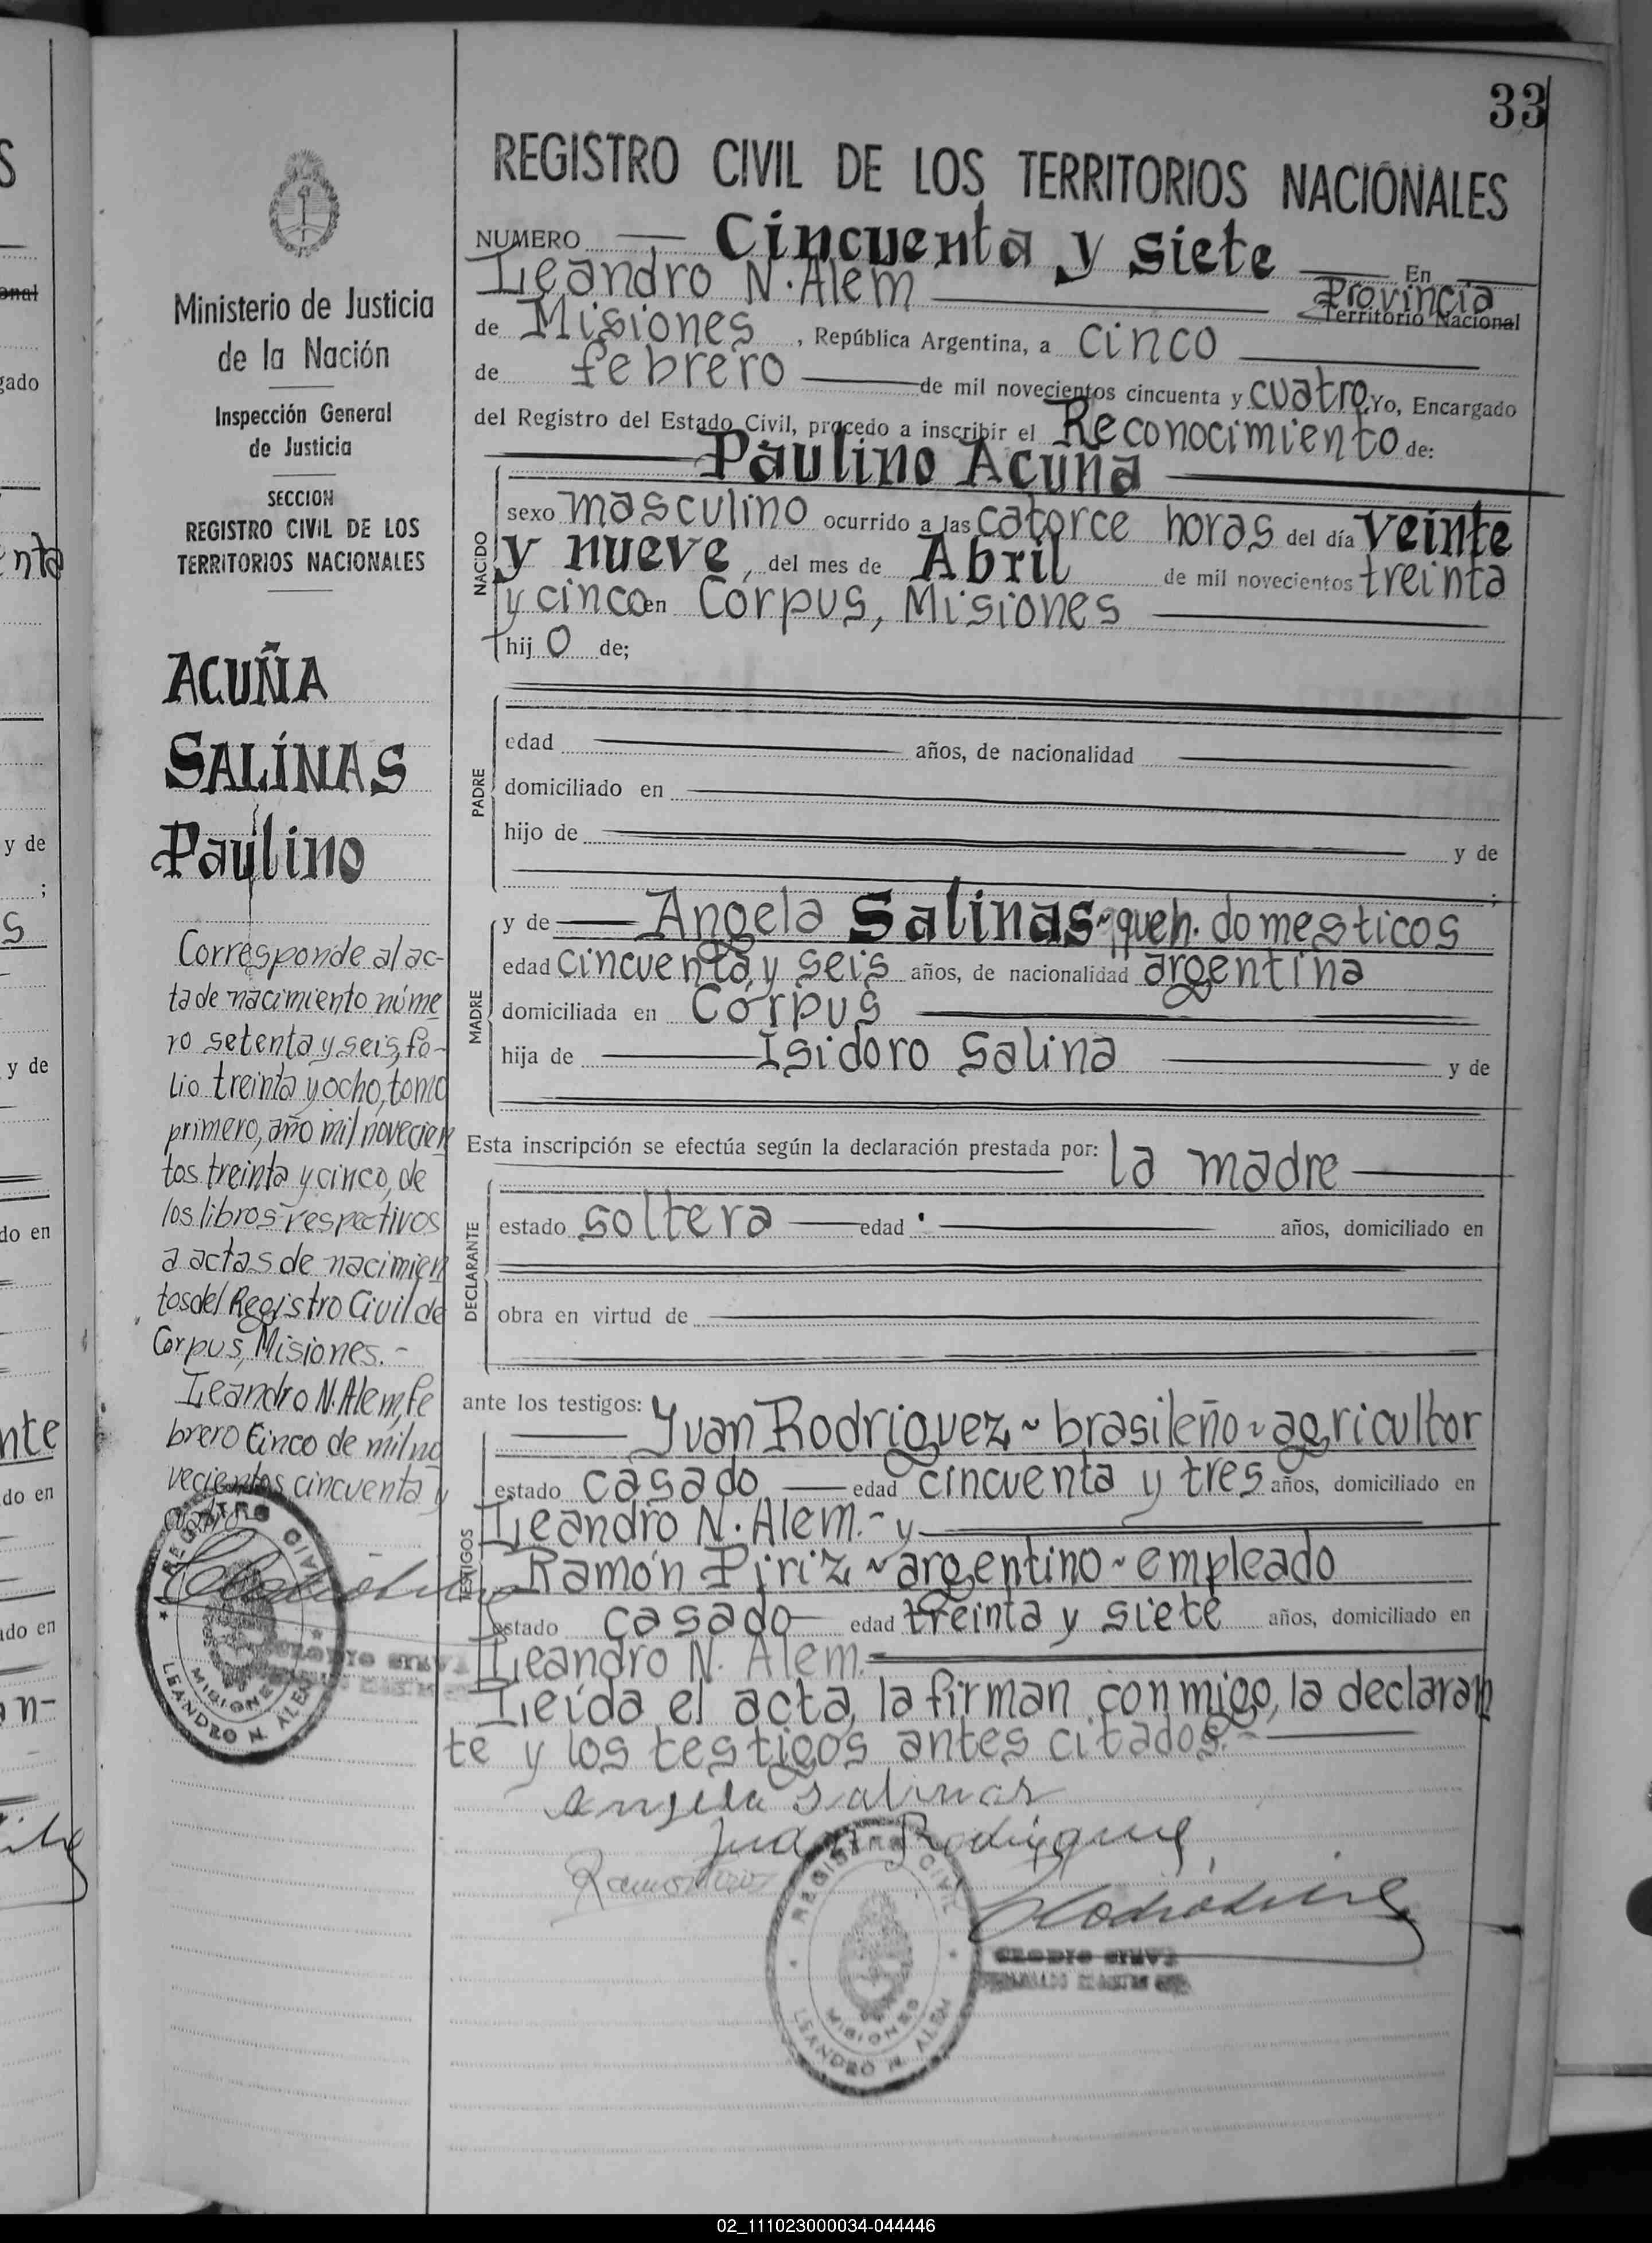 33
REGISTRO CIVIL DE LOS TERRITORIOS NACIONALES
NUMERO Cincuenta y siete En
Leandro N. Alem Provincia
Territorio Nacional
de Misiones, República Argentina, a cinco
de febrero de mil novecientos cincuenta y cuatro. Yo, Encargado
del Registro del Estado Civil, procedo a inscribir el Reconocimiento de:
Paulino Acuña
NACIDO
sexo masculino ocurrido a las catorce horas del día veinte
y nueve, del mes de Abril de mil novecientos treinta
y cinco en Corpus, Misiones
hijo de;
PADRE
edad años, de nacionalidad
domiciliado en
hijo de y de
;
MADRE
y de Angela Salinas ~ queh. domesticos
edad cincuenta y seis años, de nacionalidad argentina
domiciliada en Corpus
hija de Isidoro Salina y de
Esta inscripción se efectúa según la declaración prestada por: la madre
DECLARANTE
estado soltera edad años, domiciliado en
obra en virtud de
ante los testigos: Yuan Rodriguez ~ brasileño ~ agricultor
TESTIGOS
estado casado edad cincuenta y tres años, domiciliado en
Leandro N. Alem.- y
Ramón Piriz ~ argentino ~ empleado
estado casado edad treinta y siete años, domiciliado en
Leandro N. Alem.
Leída el acta, la firman conmigo, la declaran
te y los testigos antes citados.-
Angela Salinas
Juan Rodriguez
REGISTRO CIVIL
MISIONES
LEANDRO N. ALEM
Ministerio de Justicia
de la Nación
Inspección General
de Justicia
SECCION
REGISTRO CIVIL DE LOS
TERRITORIOS NACIONALES
ACUÑA
SALÍNAS
Paulino
Corresponde al ac-
ta de nacimiento núme
ro setenta y seis, fo-
lio treinta y ocho, tomo
primero, año mil novecien
tos treinta y cinco, de
los libros respectivos
a actas de nacimien
tos del Registro Civil de
Corpus, Misiones.-
Leandro N. Alem, fe
brero cinco de mil no
vecientos cincuenta y
REGISTRO CIVIL
MISIONES
LEANDRO N. ALEM
02_111023000034-044446